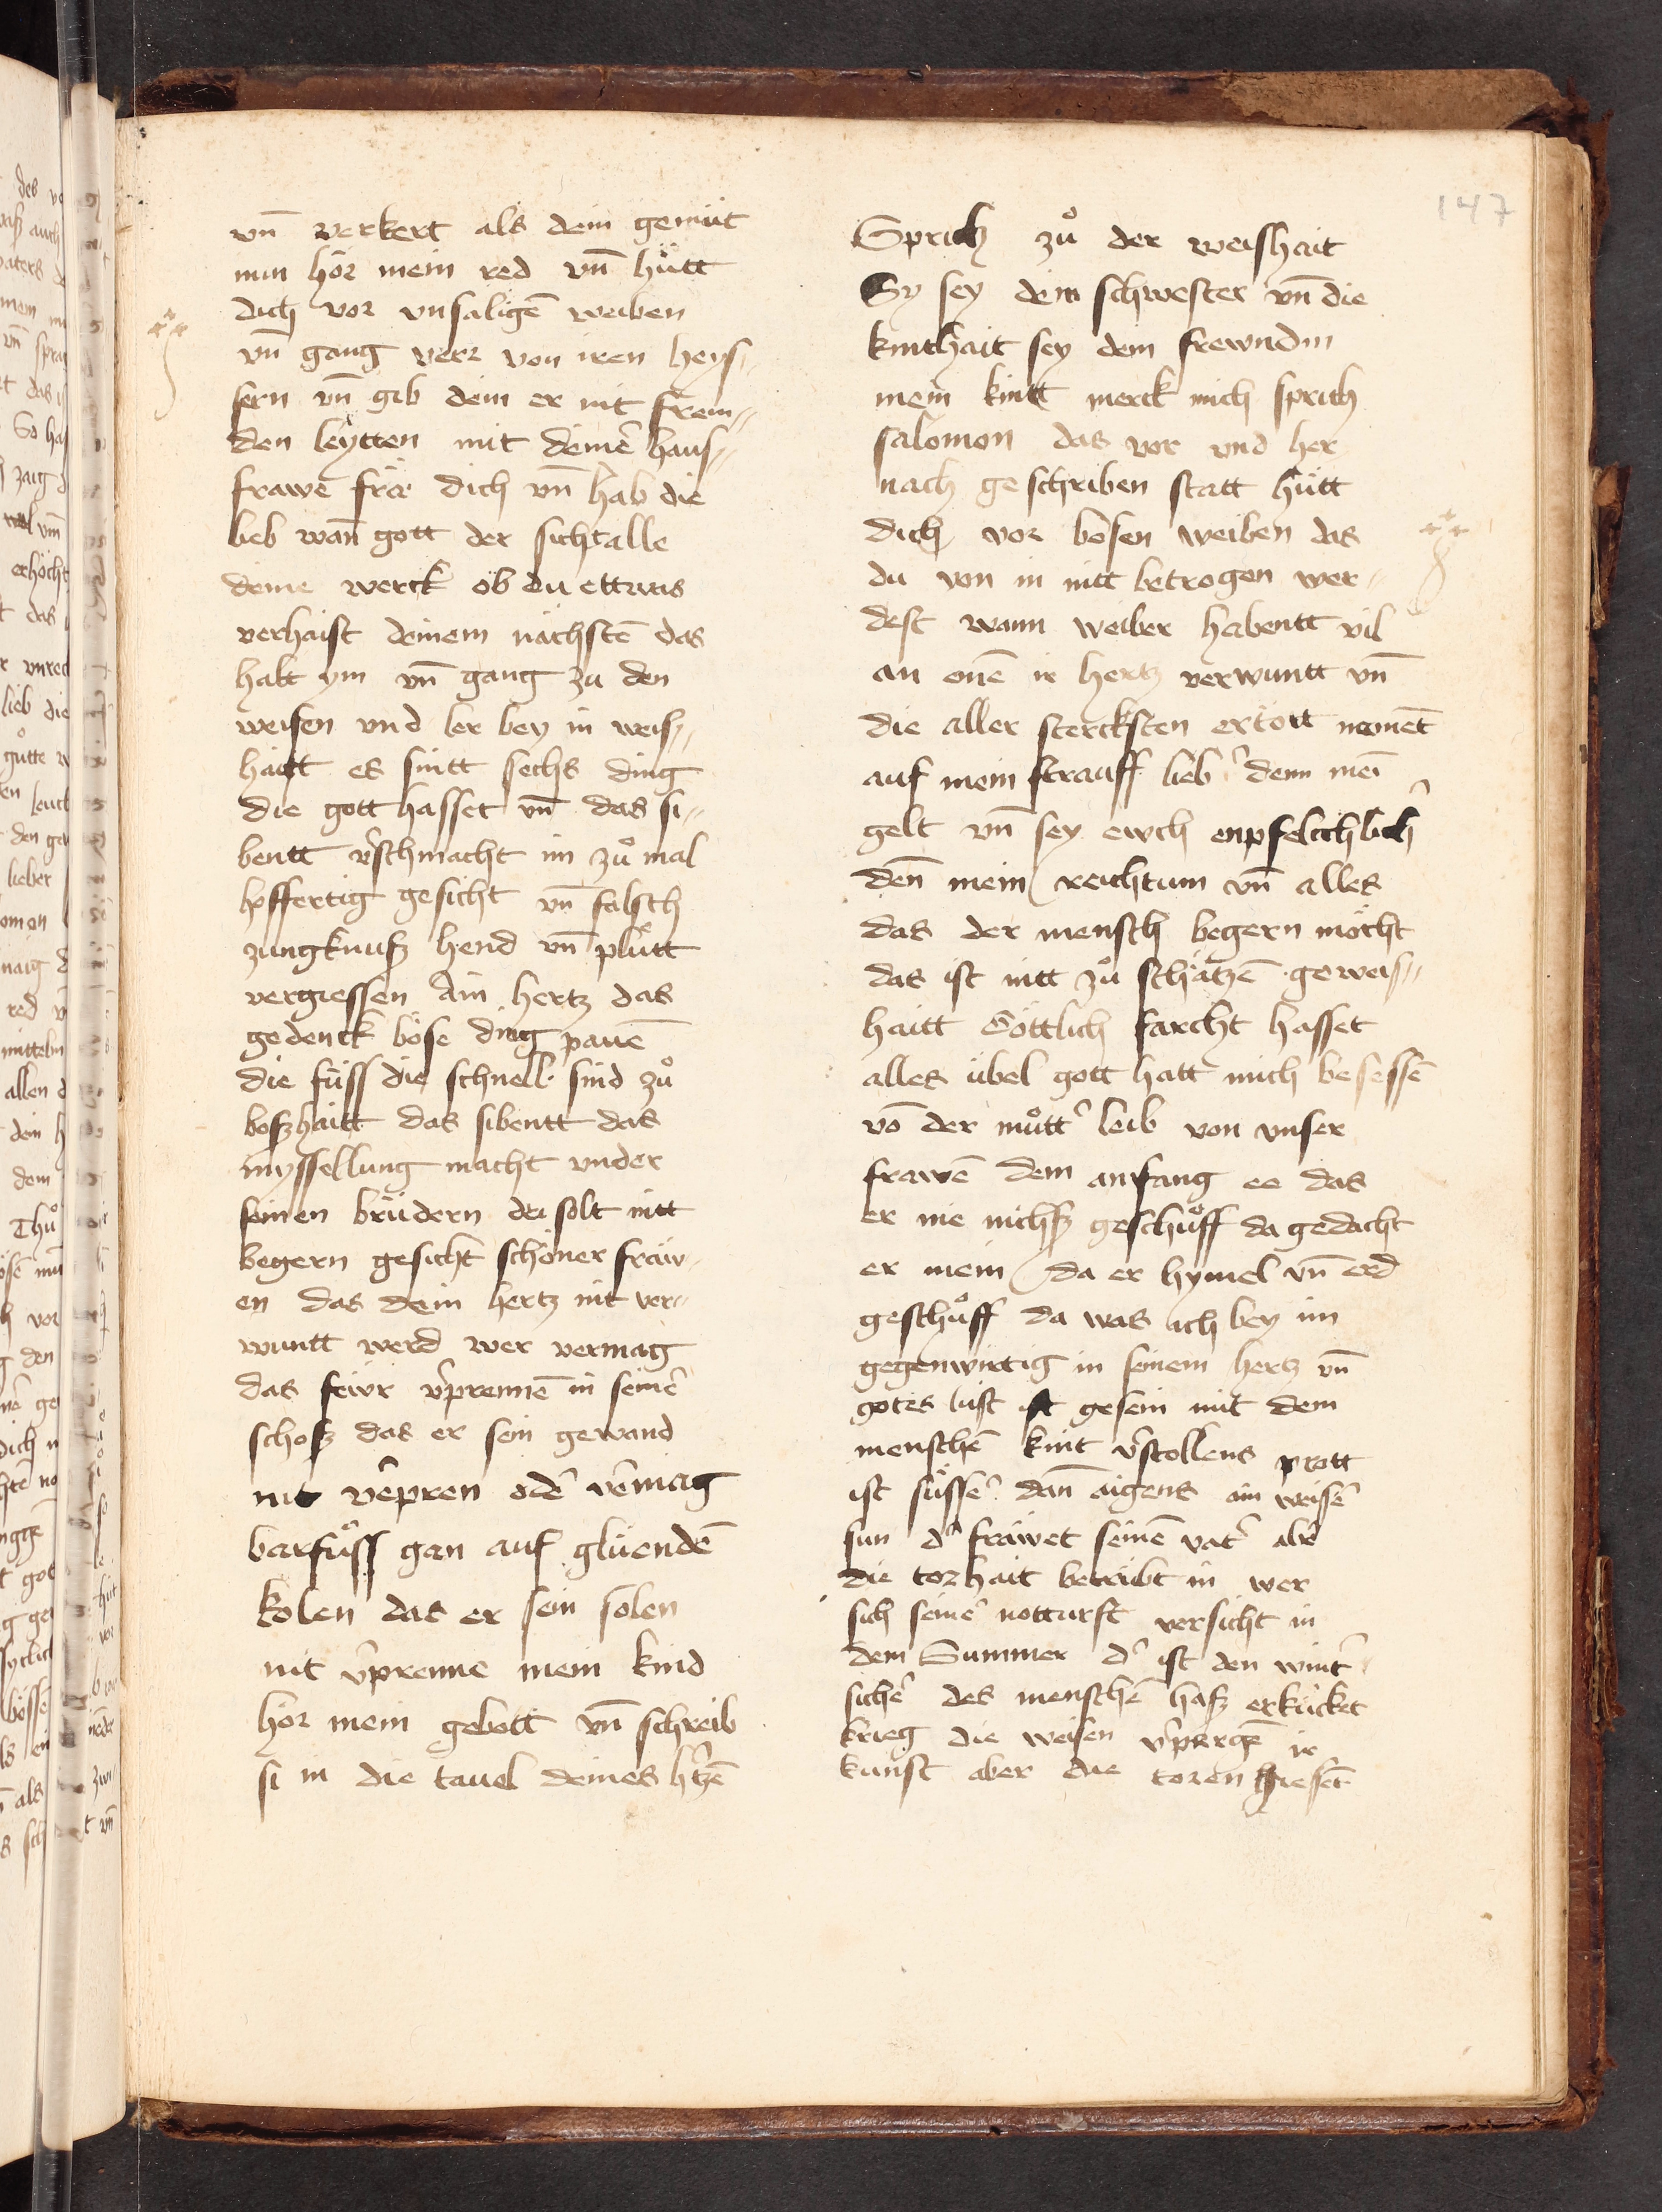 147
vn̄ verkert als dein gemüt
nun hör mein red vnd hu̇tt
dich vor vnsaligē weiben
vn̄ gang verr von iren heys⸗
sern vn̄ gib dein er nit frem⸗
den leẏtten mit deinē haus⸗
frawē frä dich vn̄ hab die
lieb wan̄ gott der sicht alle
deine werck ob du ettwas
verhaist deinem nächstē das
halt ym vn̄ gang zu den
weisen vnd ler bey in weis⸗
haitt es sintt sechs ding
die gott hasset vn̄ das si⸗
bentt v̄schmacht im zů mal
hoffertig gesicht vn̄ falsch
zung hend vn̄ plůtt
vergiessen Ain hertz das
gedenck böse ding
die füss die schnell sind zů
boszhaitt das sibentt das
myssellung macht vnder
seinen brüdern du solt nitt
begern gesicht schöner fräw⸗
en das dein hertz nit ver⸗
wuntt werd wer vermag
das feivr v̄prennē in seinē
schosz das er sein gewand
nit v̄epren odē v̄emag
barfůss gan auf glüendē
kolen das er sein solen
nit v̄prenne mein kind
hör mein gebott vn̄ schreib
si in die tauel deines h̄tzē
Sprich zů der weishait
Sy sey dein schwester vn̄ die
kinthait sey dein frewndin
mein kintt merck mich sprich
salomon das vor vnd her
nach geschriben statt hütt
dich vor bösen weiben das
du von in nitt betrogen wer⸗
dest wann weiber habentt vil
an ir hertz verwuntt vn̄
die aller stercksten ertött nement
auf mein strauff lieb̄ denn mei
gelt vn̄ sey ewch enpfelichlich
den̄ mein reichtum vn̄ alles
das der mensch begern möcht
das ist nitt zů schätzē geweis⸗
haitt Göttlich farcht hasset
alles übel gott hatt mich besessē
vō der můtt̄ leib von vnser
frawē dem anfang ee das
er nie nichsz geschůff da gedacht
er mein da er hymel vn̄ erd
geschůff da was ich bey im
gegenwirtig in seinem hertz vn̄
gotes lust ist gesein mit dem
menschē kint v̄stollens prott
ist süssē dan̄ aigens ain weisē
sun d̄ fräwet seinē vat̄ ab̄r
die torhait betrübt in wer
sich seinē notturft versicht in
dem Summer d̄ ist den wint̄
sichē des menschē hasz erkücket
krieg die weisen v̄pergē ir
kunst aber die toren